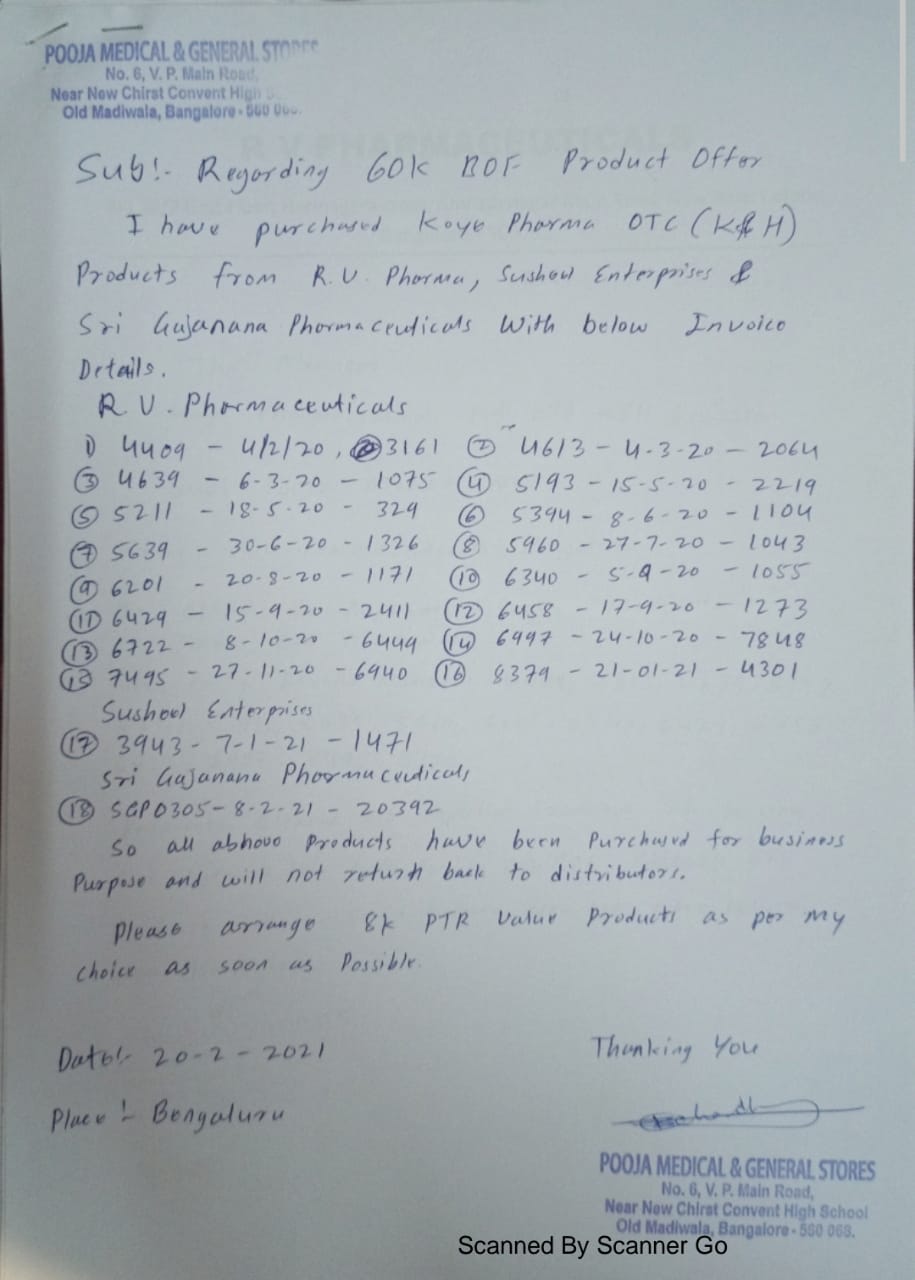 POOJA MEDICAL & GENERAL STORES
No. 6, V. P. Main Road,
Near New Chirst Convent High
Old Madiwala, Bangalore - 560
R V PHARMACEUTICALS
Sub:- Regarding 60k BOF Product Offer
I have purchased Koye Pharma OTC (K&H)
Products from R.V. Pharma, Susheel Enterprises &
Sri Gajanana Pharmaceuticals With below Invoice
Details.
R.V. Pharmaceuticals
1) 4409 - 4/2/20, 3161 ② 4613 - 4-3-20 - 2064
③ 4639 - 6-3-20 - 1075 ④ 5193 - 15-5-20 - 2219
⑤ 5211 - 18-5-20 - 329 ⑥ 5394 - 8-6-20 - 1104
⑦ 5639 - 30-6-20 - 1326 ⑧ 5960 - 27-7-20 - 1043
⑨ 6201 - 20-8-20 - 1171 ⑩ 6340 - 5-9-20 - 1055
⑪ 6429 - 15-9-20 - 2411 ⑫ 6458 - 17-9-20 - 1273
⑬ 6722 - 8-10-20 - 6449 ⑭ 6997 - 24-10-20 - 7848
⑮ 7495 - 27-11-20 - 6940 ⑯ 8379 - 21-01-21 - 4301
Susheel Enterprises
⑰ 3943 - 7-1-21 - 1471
Sri Gajanana Pharmaceuticals
⑱ SGP0305 - 8-2-21 - 20392
So all abhove Products have been Purchased for business
Purpose and will not return back to distributors.
Please arrange 8k PTR Value Products as per my
choice as soon as Possible.
Date:- 20-2-2021
Thanking You
Place:- Bengaluru
POOJA MEDICAL & GENERAL STORES
No. 6, V. P. Main Road,
Near New Chirst Convent High School
Old Madiwala, Bangalore - 560 068.
Scanned By Scanner Go